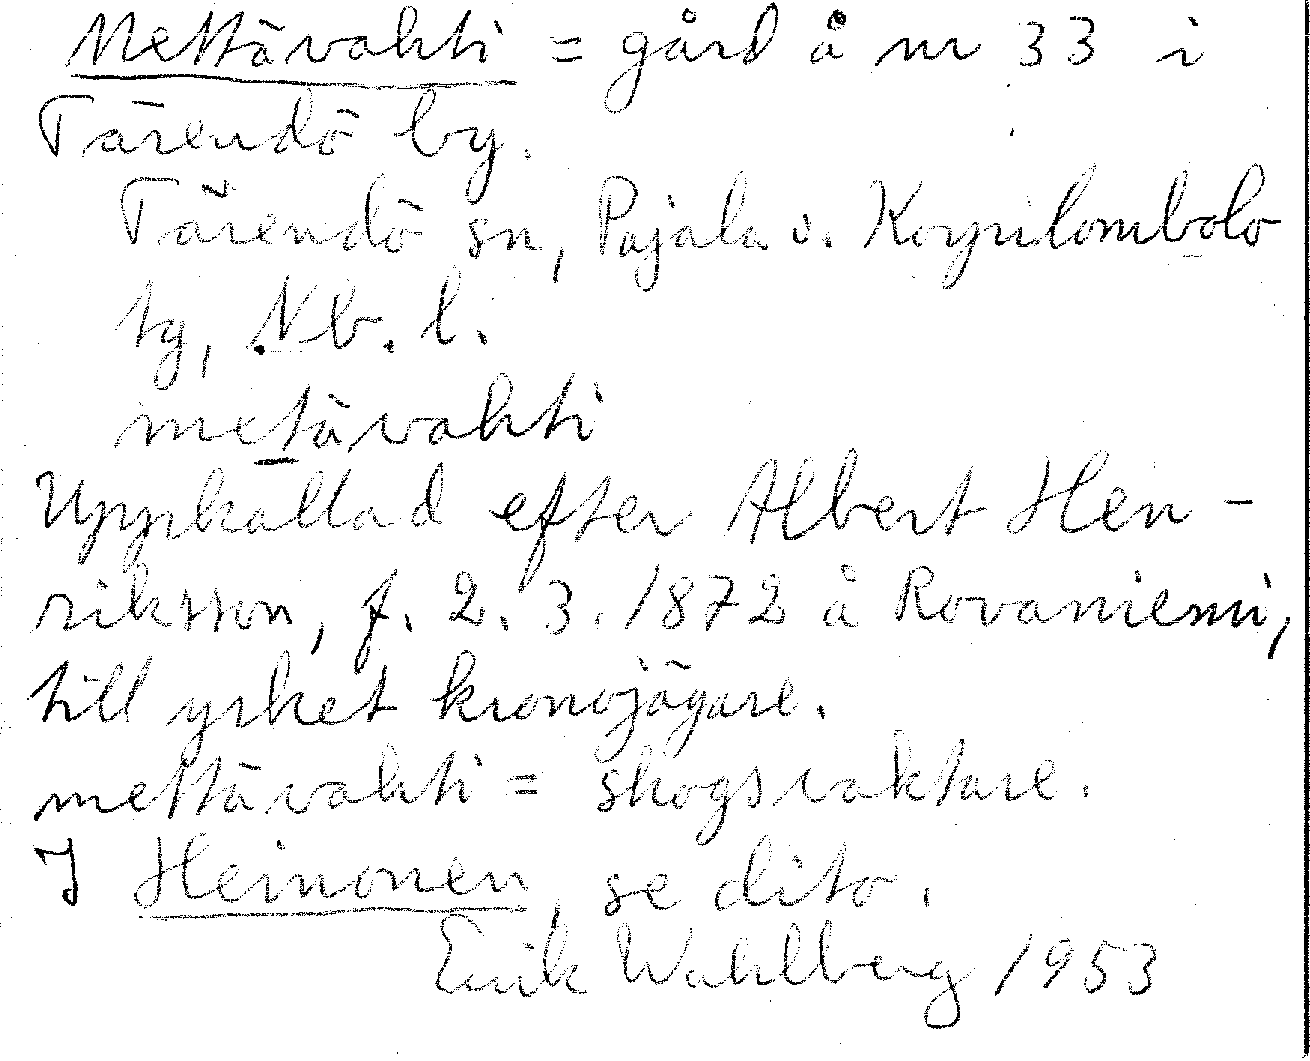 Mettävahti = gård å nr 33 i
Tärendö by.
Tärendö sn, Pajala o. Korpilombolo
tg, Nb. l.
metävahti
Uppkallad efter Albert Hen-
riksson, f. 2.3.1872 å Rovaniemi,
till yrket kronojägare.
mettävahti = skogsvaktare.
I Heinonen, se dito.
Erik Wahlberg 1953